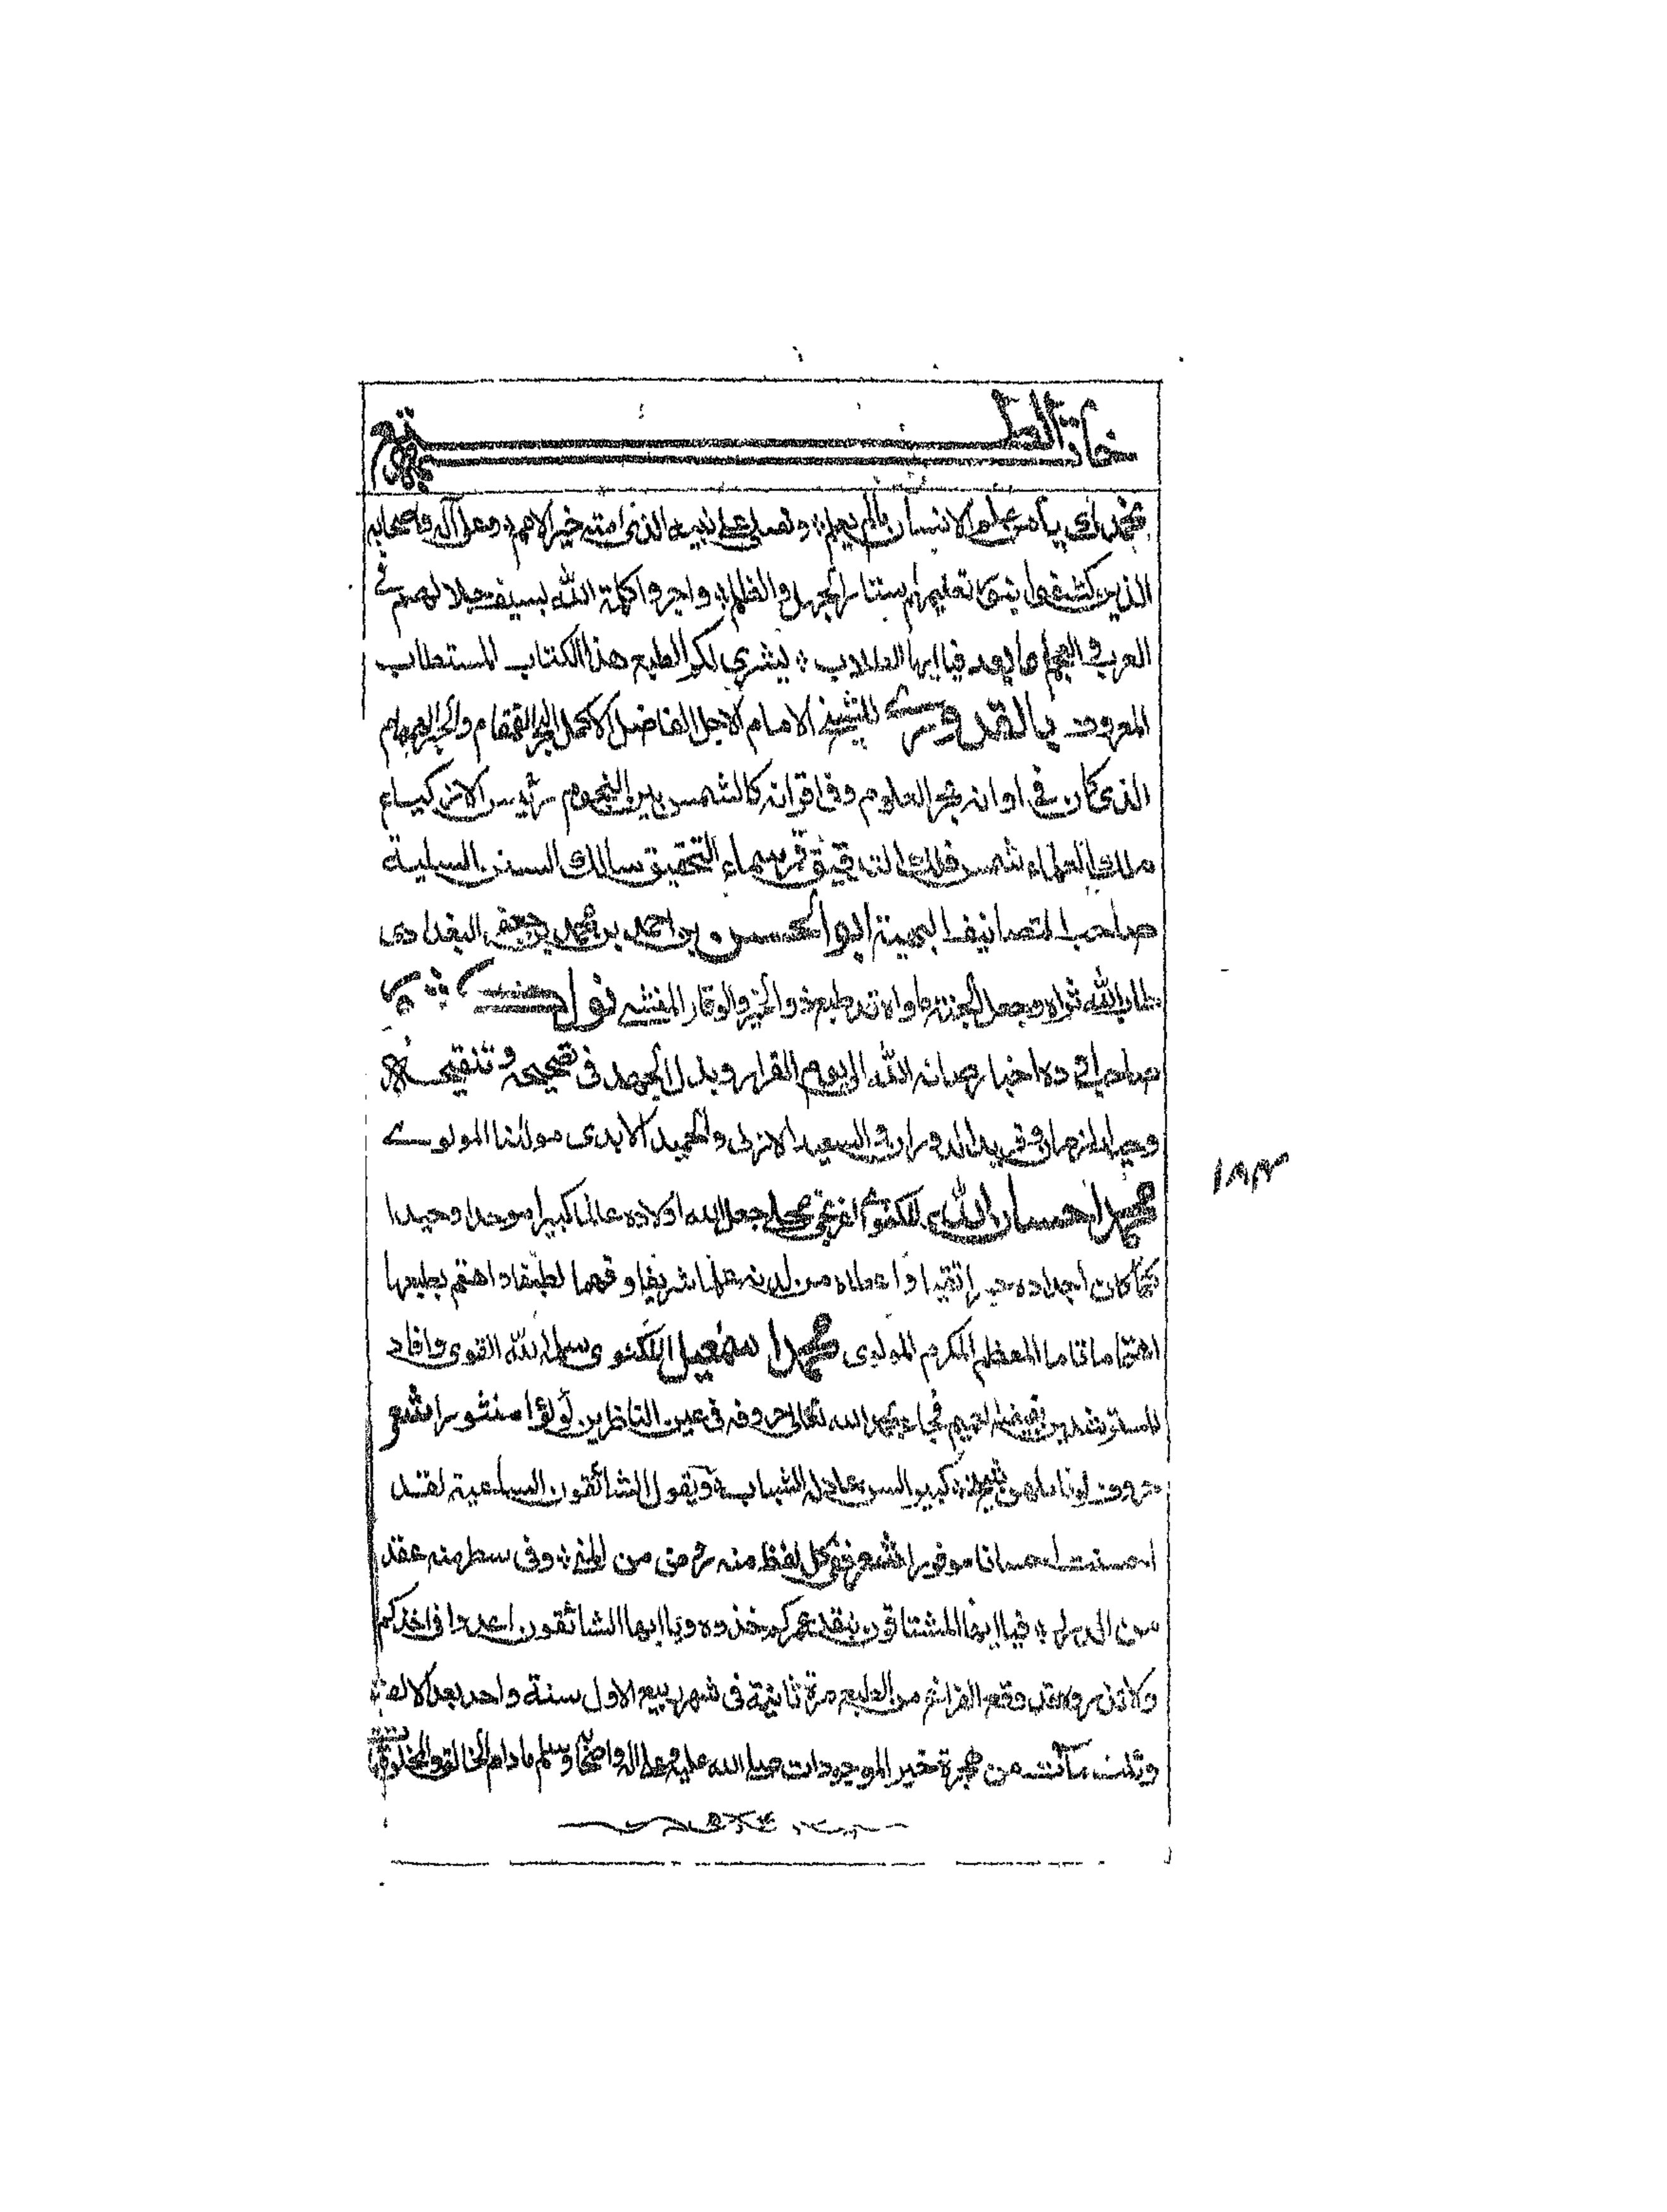 خاتمة الطبع
نحمدك يا من علم الانسان مالم يعلم ونصلي على نبيه الذي امته خير الامم وعلى آله واصحابه
الذين كشفوا تعليمهم ستار الجهل والظلم واجروا كلمة الله بسيف جلالهم في
العرب والعجم اما بعد فيا ايها الطلاب بشرى لكم لطبع هذا الكتاب المستطاب
المعروف بالقدوري للشيخ الامام الاجل الفاضل الاكمل البحر القمقام والحبر الهمام
الذى كان فى اوانه بحر العلوم وفى اقرانه كالشمس بين النجوم رئيس الازكياء
ملك العلماء شمس فلك التدقيق قمر سماء التحقيق سالك السنن السلية
صاحب التصانيف البهية ابو الحسن بن احمد بن محمد بن جعفر البغدادى
طاب الله ثراه وجعل الجنة ماواه قد طبع ذو الخير والوقار المنشى نول كشور
صاحب اوده اخبار صانه الله الى يوم القرار وبذل الجهد فى تصحيحه وتنقيحه
وحيد الزمان وفريد الدوران السعيد الازلى والحميد الابدى مولانا المولوے
محمد احسان الله اللكنوى الفرنجى محلى جعل الله اولاده عالما كبيرا موحدا وحيدا
كما كان اجداده حبرا تقيا واعطاه من لدنه علما شريفا وفهما لطيفا واهتم بطبعها
اهتماما تاما المعظم المكرم المولوى محمد اسمعيل اللكنوى سلمه الله القوى وافاد
المسترشدين بفيضه العميم فجاء بحمد الله تعالى حروفه فى عين الناظرين لؤلؤا منثورا شعر
حروف لو تاملهن كبير السن عاد له الشباب ويقول الشائقون لقد
احسنت احسانا موفورا شعر ففى كل لفظ منه روض من المنى وفى سطر منه عقد
من الدرر فيا ايها المشتاقون بنقد عمركم خذوه ويا ايها الشائقون اعدوا
ولا تذروه لقد وقع الفراغ من الطبع مرة ثانية فى شهر ربيع الاول سنة واحد بعد الالف
وثلث مائة من هجرة خير الموجودات صلى الله عليه وعلى اله واصحابه وسلم ما دام الخالق والمخلوق
١٨٣